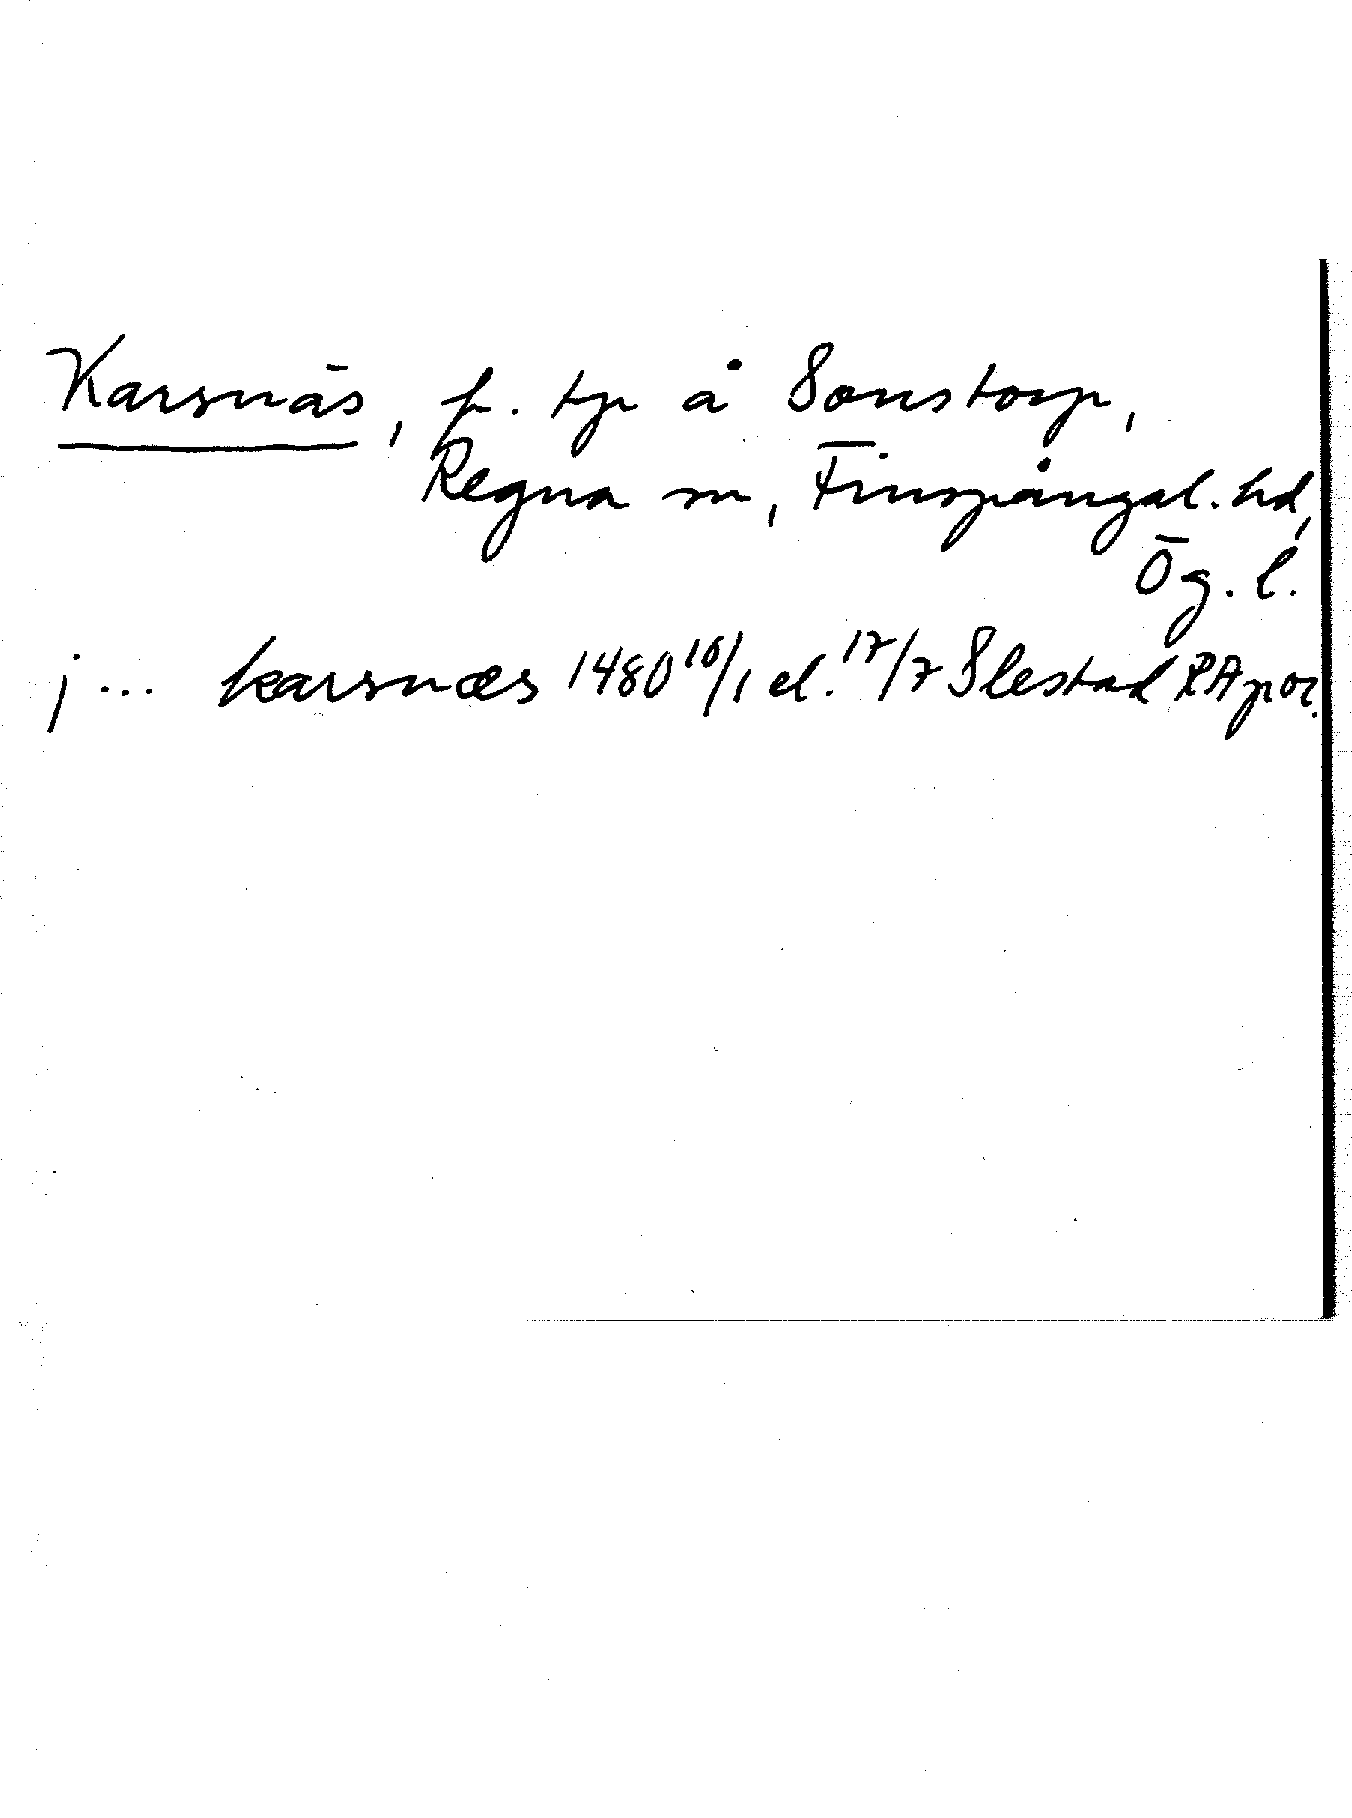 Karsnäs, f. tp å Sonstorp,
Regna sn, Finspångal. hd,
Ög. l.
j ... karsnæs 1480 16/1 el. 17/7 Slestad RApor.